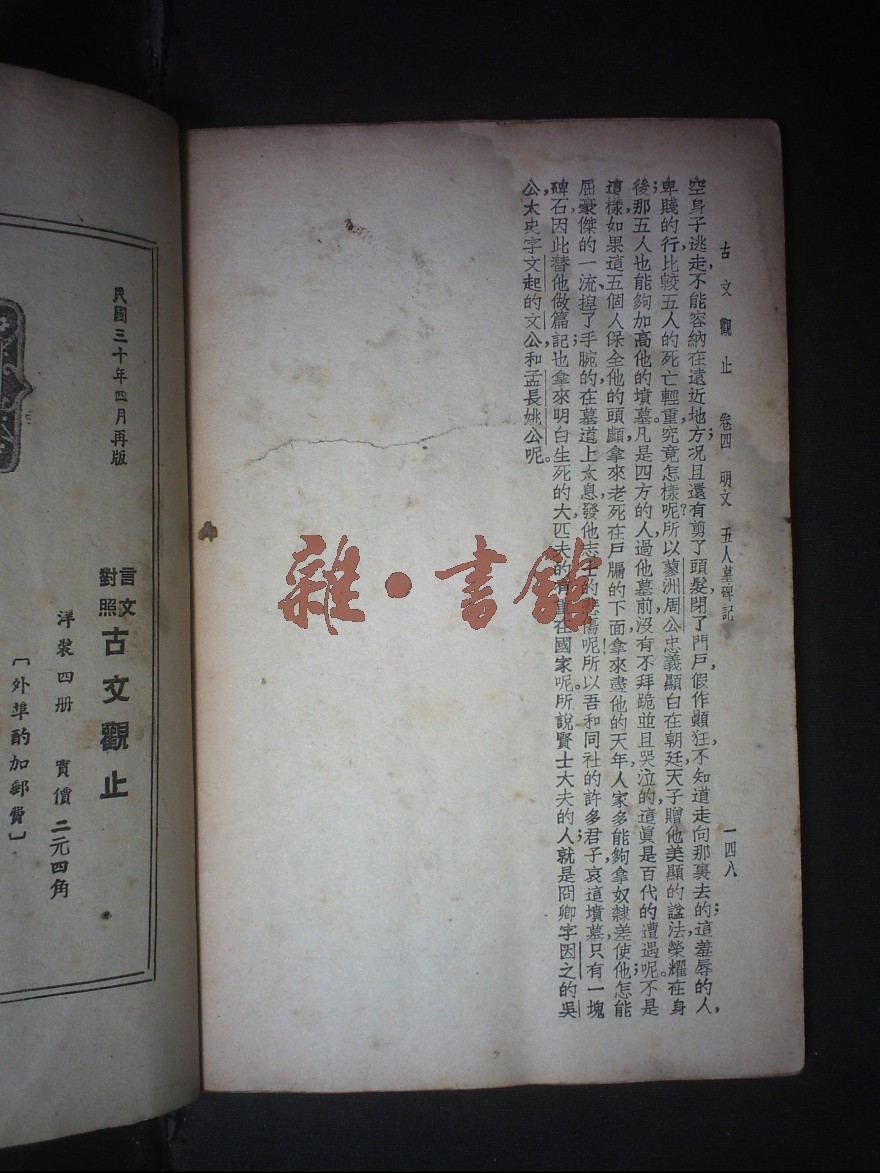 古文觀止 卷四 明文 五人墓碑記 一四八
空身子逃走,不能容納在遠近地方;況且還有剪了頭髮,閉了門戶,假作顚狂,不知道走向那裏去的;這羞辱的人,
卑賤的行,比較五人的死亡,輕重究竟怎樣呢?所以蓼洲周公,忠義顯白在朝廷,天子贈他美顯的諡法,榮耀在身
後;那五人也能夠加高他的墳墓。凡是四方的人,過他墓前,沒有不拜跪並且哭泣的,這眞是百代的遭遇呢。不是
這樣,如果這五個人保全他的頭顱,拿來老死在戶牖的下面,拿來盡他的天年,人家多能夠拿奴隸差使他,怎能
屈豪傑的一流,揑了手腕的在墓道上太息,發他志士的悲傷呢!所以吾和同社的許多君子,哀這墳墓,只有一塊
碑石,因此替他做篇記;也拿來明白生死的大,匹夫的有重在國家呢。所說賢士大夫的人;就是冏卿字因之的吳
公,太史字文起的文公,和孟長姚公呢。
民國三十年四月再版
言文對照 古文觀止
洋裝四册 實價二元四角
〔外埠酌加郵費〕
雜·書館